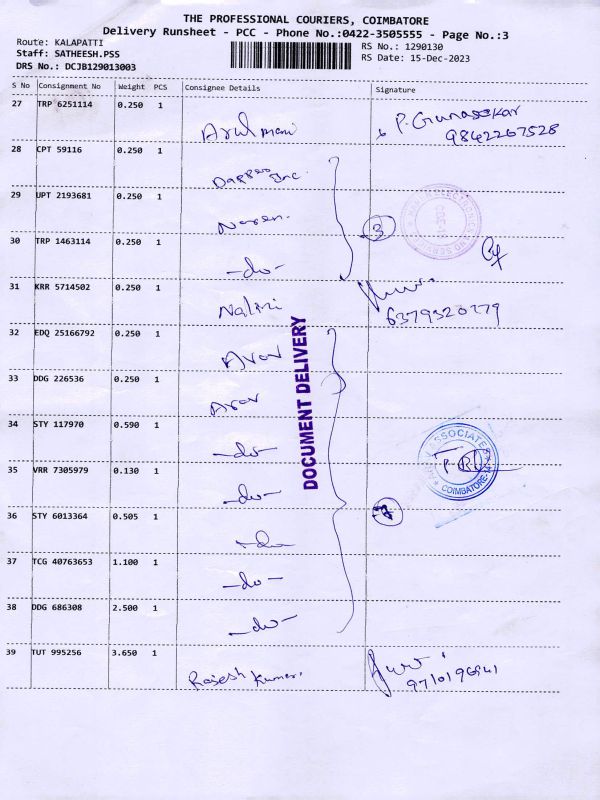 THE PROFESSIONAL COURIERS, COIMBATORE
Delivery Runsheet - PCC - Phone No.:0422-3505555 - Page No.:3
Route: KALAPATTI
Staff: SATHEESH.PSS
DRS No.: DCJB129013003
RS No.: 1290130
RS Date: 15-Dec-2023
S No Consignment No Weight PCS Consignee Details Signature
27 TRP 6251114 0.250 1 Arul mani P. Gunasekar
9842267528
28 CPT 59116 0.250 1
29 UPT 2193681 0.250 1 Naren.
30 TRP 1463114 0.250 1 -do-
3
31 KRR 5714502 0.250 1 Nalini
6379320779
32 EDQ 25166792 0.250 1 Arov
33 DDG 226536 0.250 1 Arov
34 STY 117970 0.590 1 -do-
35 VRR 7305979 0.130 1 -do-
36 STY 6013364 0.505 1 -do-
37 TCG 40763653 1.100 1 -do-
38 DDG 686308 2.500 1 -do-
7
ASSOCIATES
COIMBATORE
DOCUMENT DELIVERY
39 TUT 995256 3.650 1 Rajesh Kumar